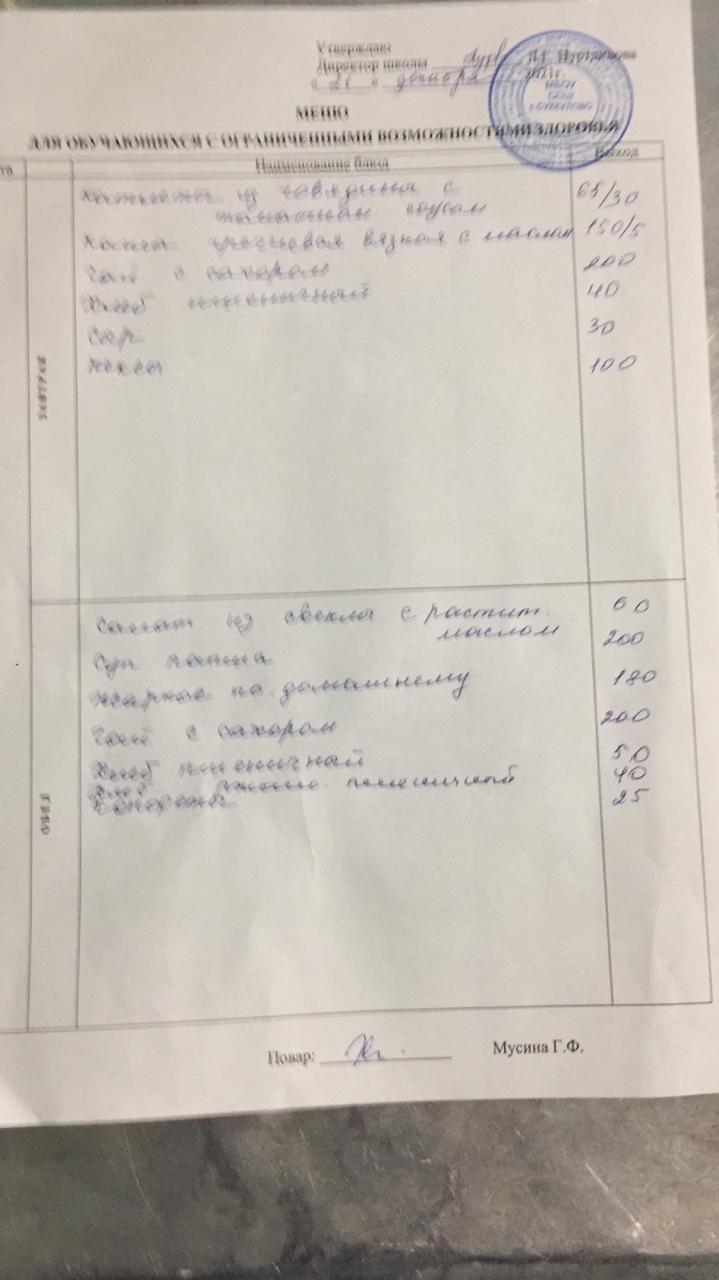 Утверждаю
Директор школы
" 21 " декабря 2021г.
МЕНЮ
ДЛЯ ОБУЧАЮЩИХСЯ С ОГРАНИЧЕННЫМИ ВОЗМОЖНОСТЯМИ ЗДОРОВЬЯ
Наименование блюд Выход
завтрак
Котлета из говядины с
томатным соусом 65/30
Каша гречневая вязкая с маслом 150/5
Чай с сахаром 200
Хлеб пшеничный 40
Сыр 30
100
обед
Салат из свеклы с растит. 60
маслом
Суп лапша 200
Жаркое по домашнему 180
Чай с сахаром 200
Хлеб пшеничный 50
Хлеб ржано пшеничной 40
25
Повар: Мусина Г.Ф.